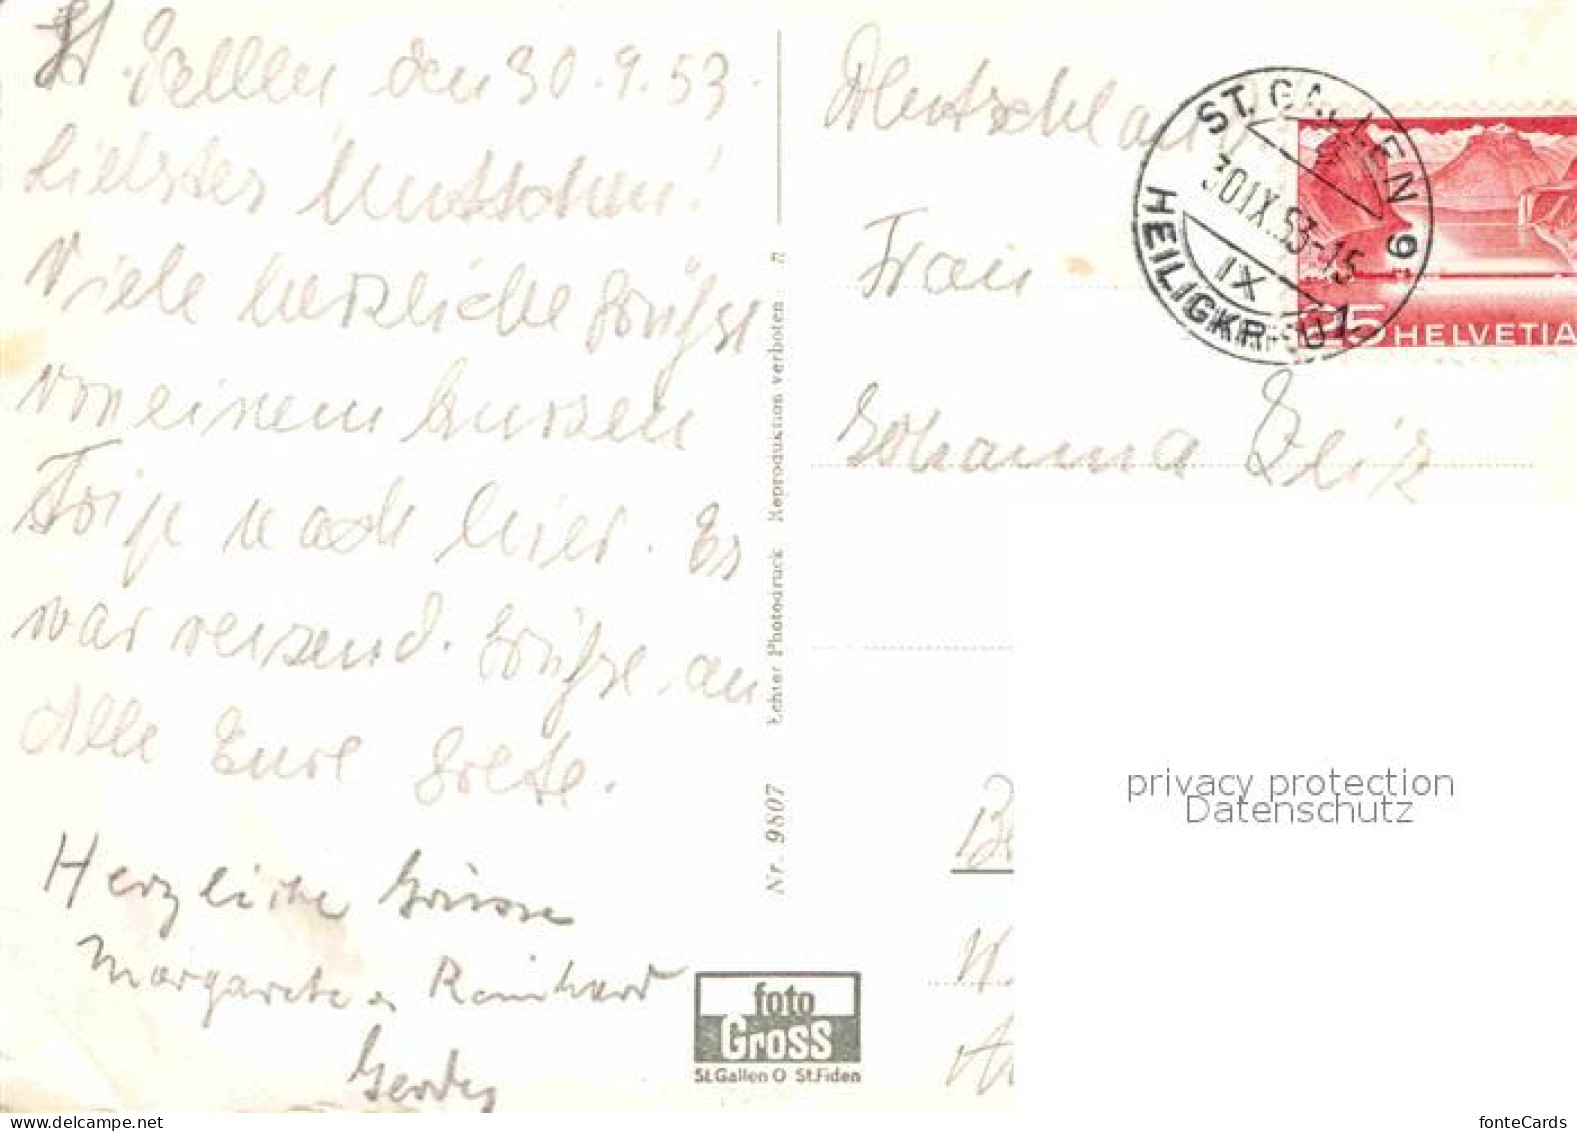 St. Gallen den 30.9.53.
Liebstes Muttchen!
Viele herzliche Grüße
von einem kurzen
Trip nach hier. Es
war reizend. Grüße an
Alle Eure Grete.
Herzliche Grüsse
Margarete u Reinhard
Gerdes
Nr. 9807 Echter Photodruck Reproduktion verboten
foto
Gross
St.Gallen O St.Fiden
Deutschland
Frau
Johanna
ST. GALLEN 9
30.IX.53-15
IX
HEILIGKREUZ
25 HELVETIA
privacy protection
Datenschutz
www.delcampe.net
fonteCards